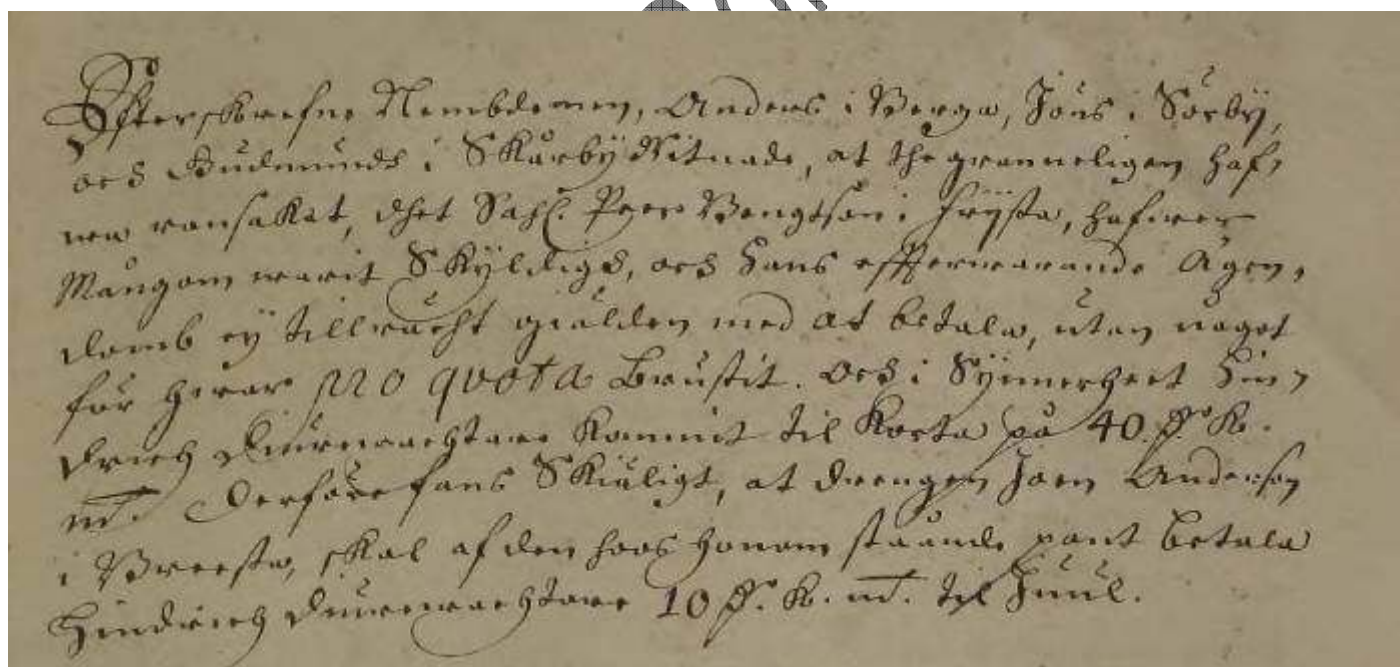 Effterskrefne Nembdemen, Anders i Berga, Jöns i Sörby,
och Gudmundh i Skårby Witnade, at the granneligen haf,
wa ransakat, dhet Sahl. Peer Bengtson i Frysta, hafwer
Mångom warit Skyldigh, och hans effterwarande Ägen,
domb ey tillräckt giälden med at betala, utan något
för hwar pro quota Brustit. och i Synnerheet Hin,
drich Diurewachtare kommit til korta på 40. K.
mt. Derföre fans Skiäligt, at drengen Joen Anderson
i Breesta, skal af den hoos honom ståånde pant betala
Hindrich Diurewachtare 10 K. mt. til Juul.